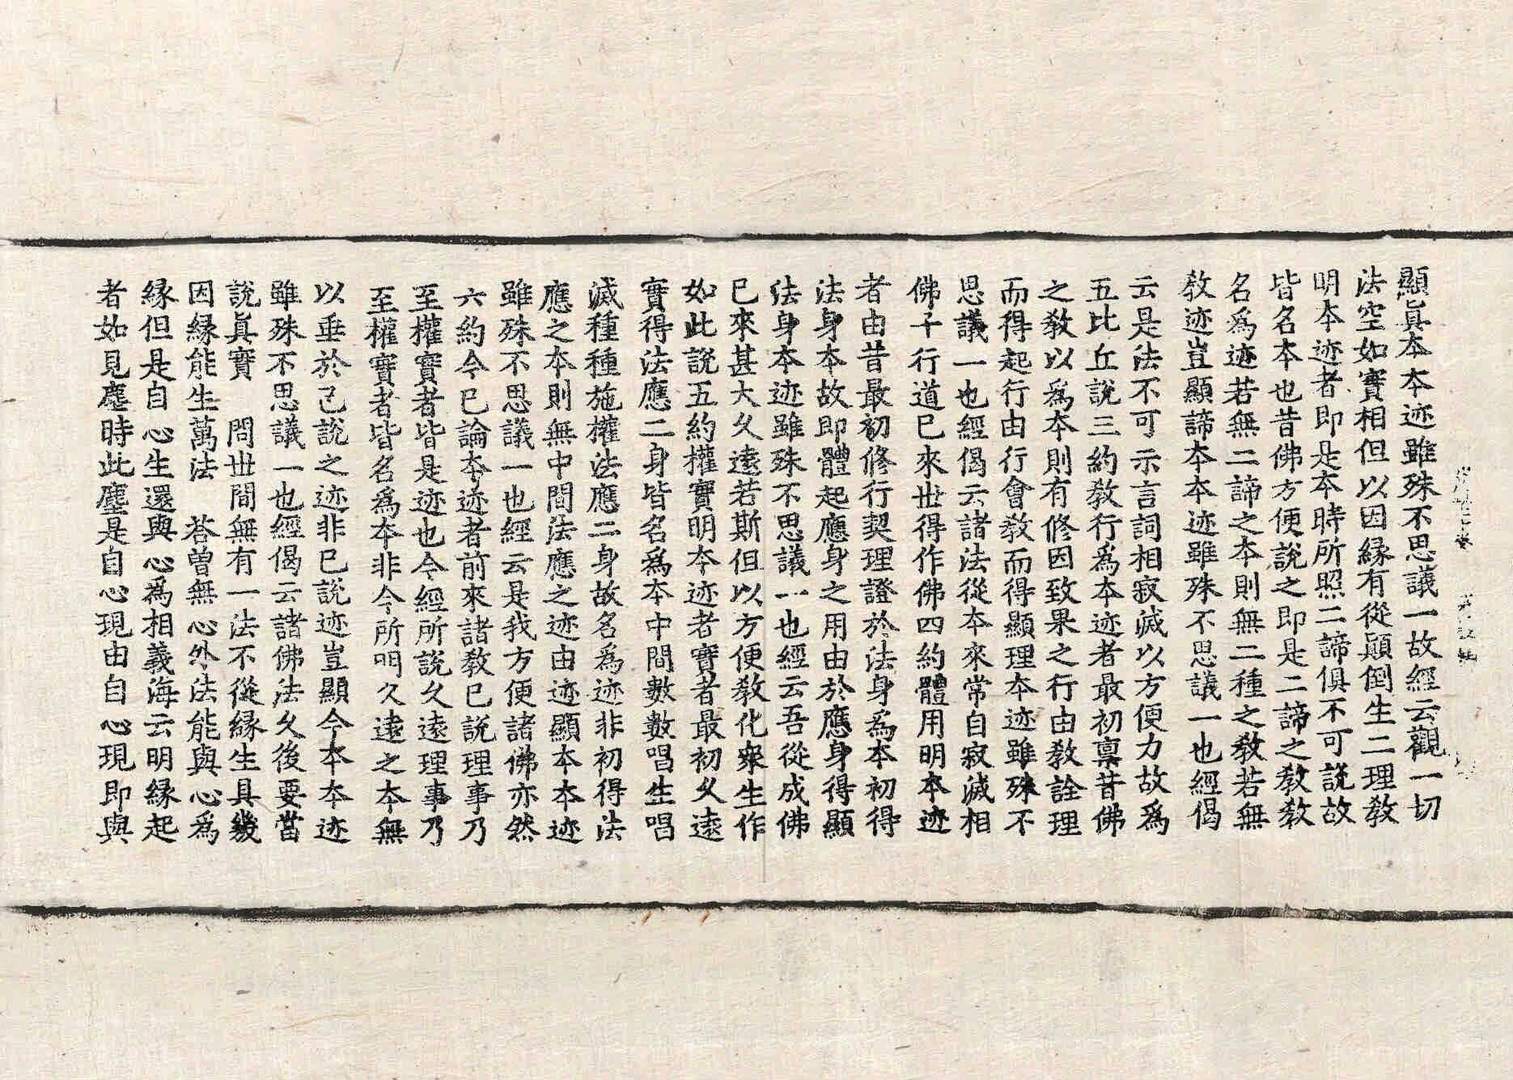 顯眞本本迹雖殊不思議一故經云觀一切
法空如實相但以因緣有從顚倒生二理敎
明本迹者即是本時所照二諦俱不可說故
皆名本也昔佛方便說之即是二諦之敎敎
名爲迹若無二諦之本則無二種之敎若無
敎迹豈顯諦本本迹雖殊不思議一也經偈
云是法不可示言詞相寂滅以方便力故爲
五比丘說三約敎行爲本迹者最初禀昔佛
之敎以爲本則有修因致果之行由敎詮理
而得起行由行會敎而得顯理本迹雖殊不
思議一也經偈云諸法從本來常自寂滅相
佛子行道已來世得作佛四約體用明本迹
者由昔最初修行契理證於法身爲本初得
法身本故即體起應身之用由於應身得顯
法身本迹雖殊不思議一也經云吾從成佛
已來甚大久遠若斯但以方便敎化衆生作
如此說五約權實明本迹者實者最初久遠
實得法應二身皆名爲本中間數數唱生唱
滅種種施權法應二身故名爲迹非初得法
應之本則無中間法應之迹由迹顯本本迹
雖殊不思議一也經云是我方便諸佛亦然
六約今已論本迹者前來諸敎已說理事乃
至權實者皆是迹也今經所說久遠理事乃
至權實者皆名爲本非今所明久遠之本無
以垂於已說之迹非已說迹豈顯今本本迹
雖殊不思議一也經偈云諸佛法久後要當
說眞實　問世間無有一法不從緣生具幾
因緣能生萬法　荅曾無心外法能與心爲
緣但是自心生還與心爲相義海云明緣起
者如見塵時此塵是自心現由自心現即與